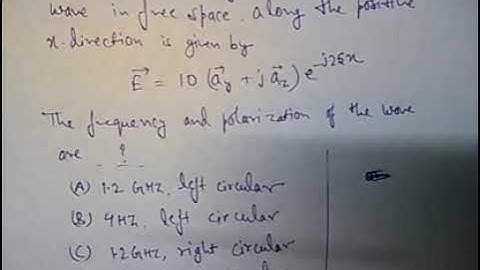 wave in free space. along the positive
x-direction is given by
E⃗ = 10 (a⃗y + j a⃗z) e^-j25x
The frequency and polarization of the wave
are _ ? _
(A) 1.2 GHz, left circular
(B) 4Hz, left circular
(C) 1.2GHz, right circular